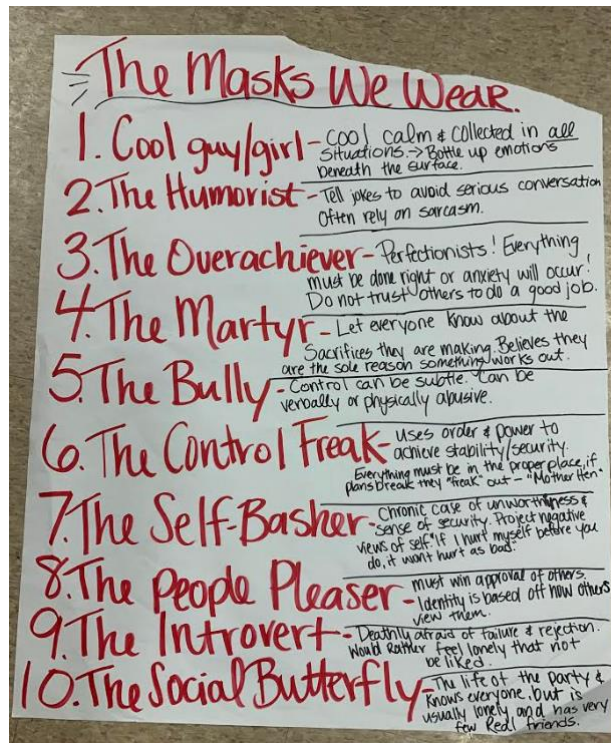 The Masks We Wear.
1. Cool guy/girl - cool calm & collected in all
situations. → Bottle up emotions
beneath the surface.
2. The Humorist - Tell jokes to avoid serious conversation
Often rely on sarcasm.
3. The Overachiever - Perfectionists! Everything
must be done right or anxiety will occur!
Do not trust others to do a good job.
4. The Martyr - Let everyone know about the
Sacrifices they are making. Believes they
are the sole reason something works out.
5. The Bully - Control can be subtle. Can be
verbally or physically abusive.
6. The Control Freak - uses order & power to
achieve stability/security.
Everything must be in the proper place, if
plans break they "freak" out - "Mother Hen"
7. The Self-Basher - Chronic case of unworthiness &
sense of security. Project negative
views of self. "If I hurt myself before you
do, it wont hurt as bad."
8. The People Pleaser - must win approval of others.
Identity is based off how others
view them.
9. The Introvert - Deathly afraid of failure & rejection.
Would Rather feel lonely that not
be liked.
10. The Social Butterfly - The life of the party &
Knows everyone, but is
usually lonely and has very
few Real friends.